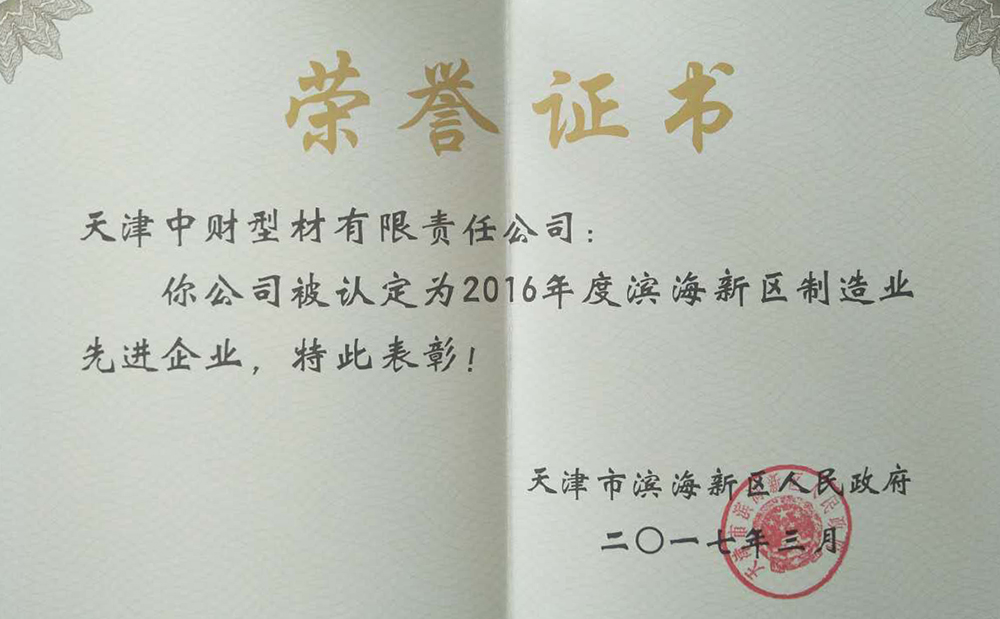 荣誉证书
天津中财型材有限责任公司：
你公司被认定为2016年度滨海新区制造业
先进企业，特此表彰！
天津市滨海新区人民政府
二〇一七年三月
天津市滨海新区人民政府